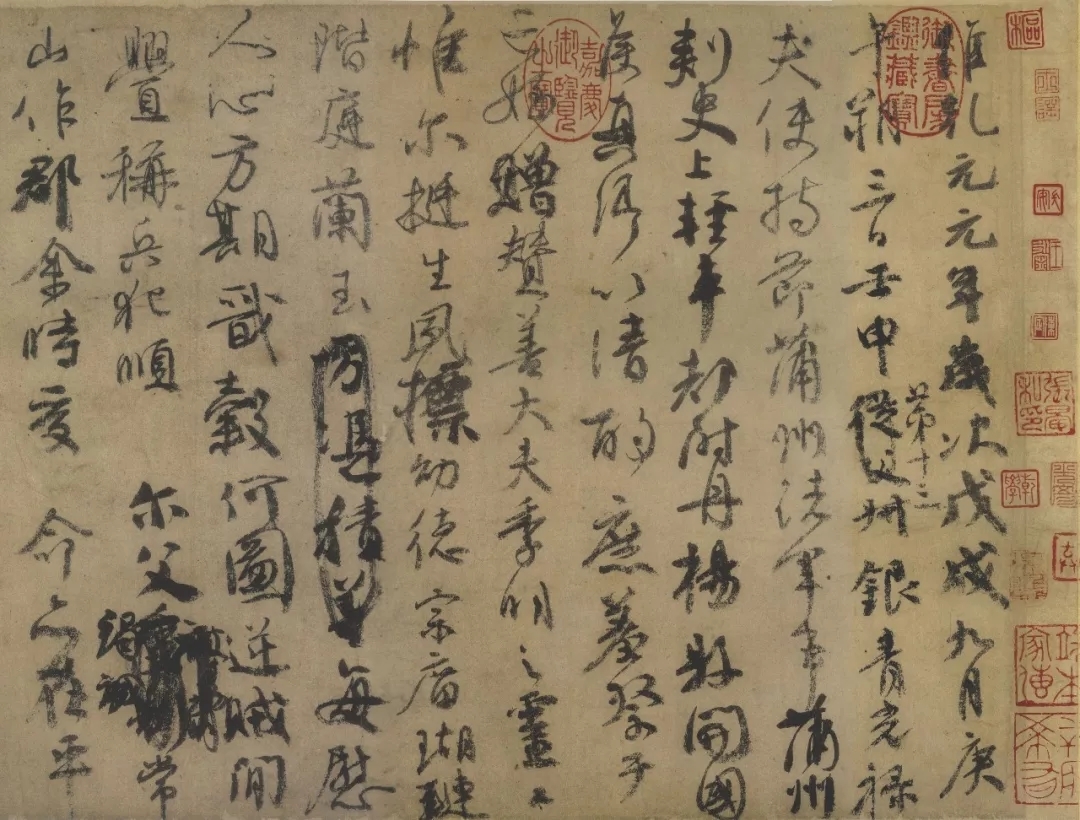 維乾元元年歲次戊戌九月庚
午朔三日壬申第十三從父叔銀青光祿
夫使持節蒲州諸軍事蒲州
刺史上輕車都尉丹楊縣開國
侯真卿以清酌庶羞祭于
亡姪贈贊善大夫季明之靈曰
惟尔挺生夙標幼德宗廟瑚璉
階庭蘭玉方憑積善每慰
人心方期戩穀何圖逆賊閒
釁稱兵犯順尔父竭誠常
山作郡余時受命亦在平
御書房鑑藏寶
嘉慶御覽之寶